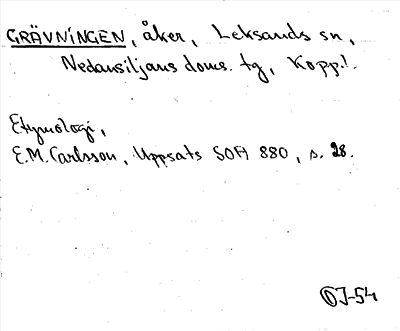 GRÄVNINGEN, åker, Leksands sn,
Nedansiljans doms. tg, Kopp.l.
Etymologi,
E.M. Carlsson, Uppsats SOFI 880, s. 28.
OJ-54